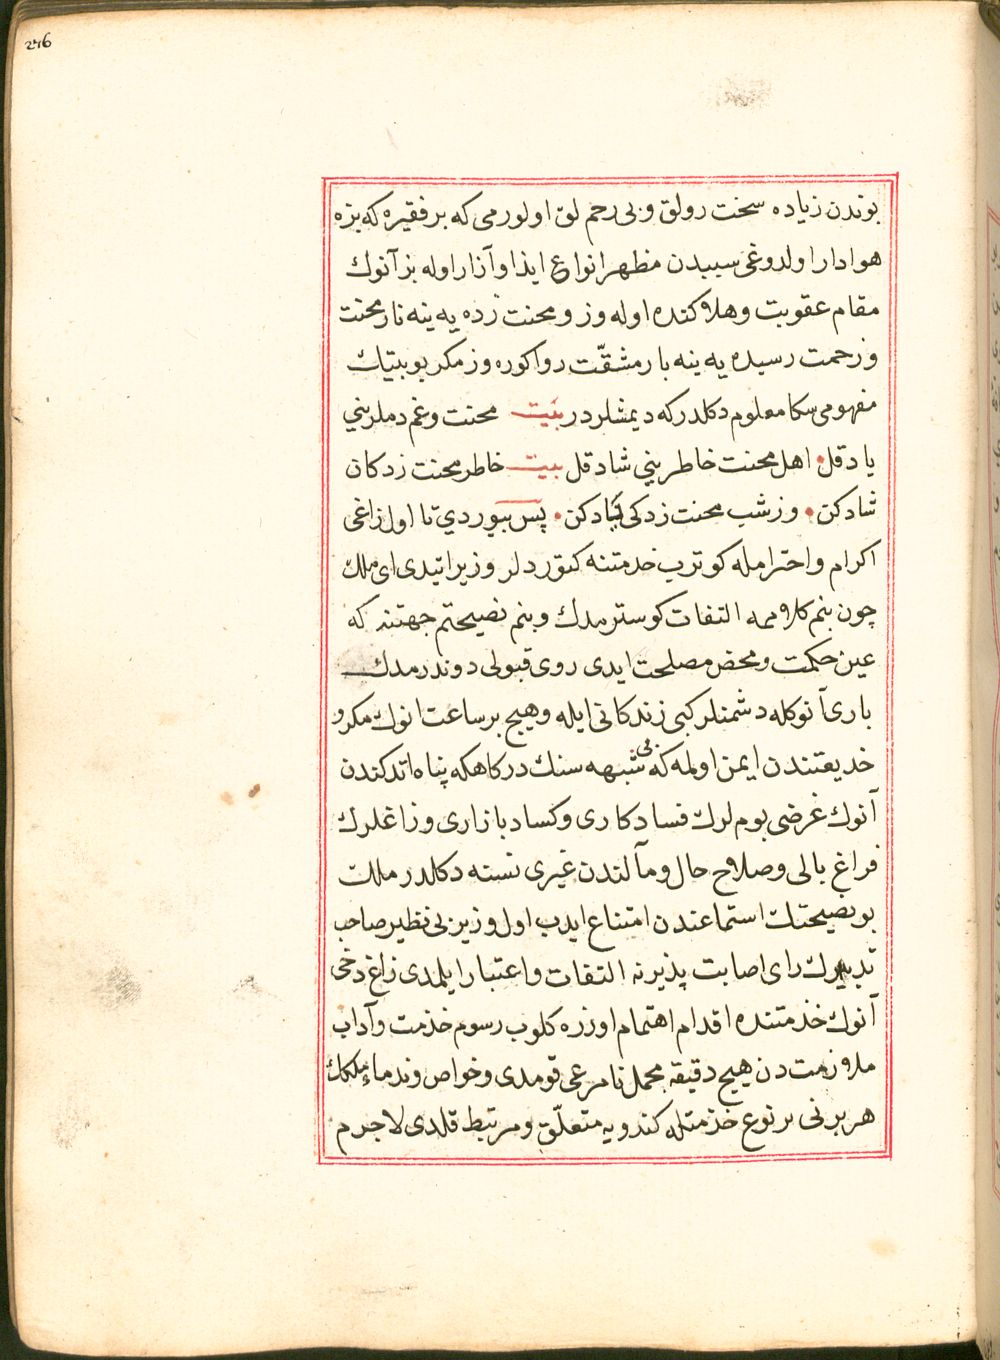 246
بوندن زیاده سخت رولق و بی رحم لق اولورمی که بر فقیره که بزه
هوادار اولدوغی سببدن مظهر انواع ایذا و آزار اوله بز آنوك
مقام عقوبت و هلاکنده اوله وز و محنت زده یه ینه نار محنت
و زحمت رسیده یه ینه بار مشقّت روا کوره وز مکر بو بیتك
مفهومی سکا معلوم دکلدر که دیمشلردر بیت محنت و غم دملریني
یاد قل • اهل محنت خاطریني شاد قل بیت خاطر محنت زدکان
شاد کن • وز شب محنت زدکی یاد کن • پس بیوردي تا اول زاغی
اکرام و احترامله کوترب خدمتنه کتوردلر وزیر ایتدی ای ملك
چون بنم کلاممه التفات کوسترمدك و بنم نصیحتم جهتنه که
عین حکمت و محض مصلحت ایدی روی قبولی دوندرمدك
باری آنوکله دشمنلر کبی زندکانی ایله و هیچ بر ساعت انوك مکر و
خدیعتندن ایمن اولمه که بی شبهه سنك درکاهکه پناه اتدکندن
آنوك غرضی بوم لرك فساد کاری و کساد بازاری و زاغلرك
فراغ بالی و صلاح حال و مآلندن غیری نسته دکلدر ملك
بو نصیحتك استماعندن امتناع ایدب اول وزیر بی نظیر صاحب
تدبیرك رای اصابت پذیرنه التفات و اعتبار ایلمدی زاغ دخی
آنوك خذمتنده اقدام اهتمام اوزره کلوب رسوم خذمت و آداب
ملازمت دن هیچ دقیقه مجمل نامرعی قومدی و خواص و ندماء ملکك
هر برنی بر نوع خذمتله کندویه متعلّق و مرتبط قلدی لاجرم